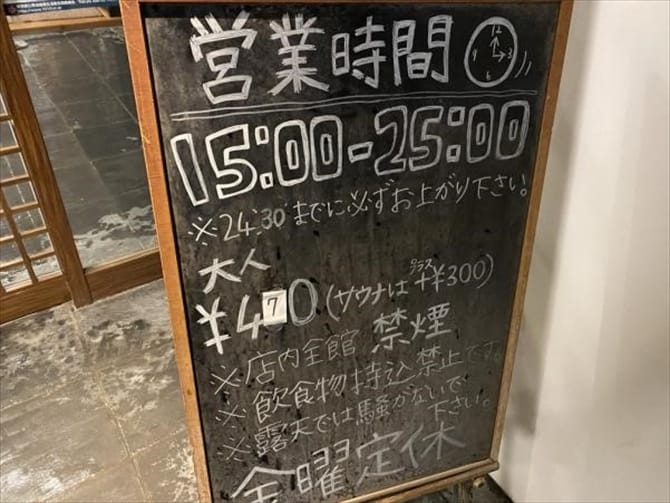 営業時間 12 3 6 9
15:00-25:00
※24:30までに必ずお上がり下さい。
大人
プラス
¥470(サウナは+¥300)
※店内全館 禁煙
※飲食物持込禁止です。
※露天では騒がないで
下さい。
金曜定休